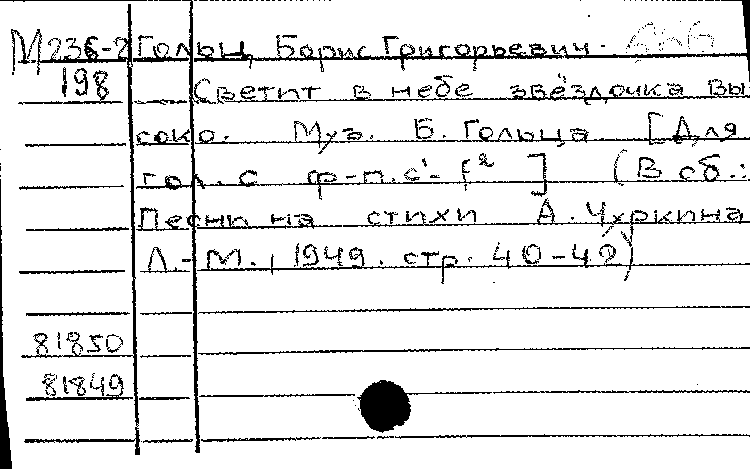 М236-2 Гольц, Борис Григорьевич.
198 Светит в небе звёздочка вы
соко. Муз. Б. Гольца. [Для
гол. с ф-п. c'-f²] (В сб.:
Песни на стихи А. Чуркина
Л.-М., 1949. стр. 40-42)
81850
81849